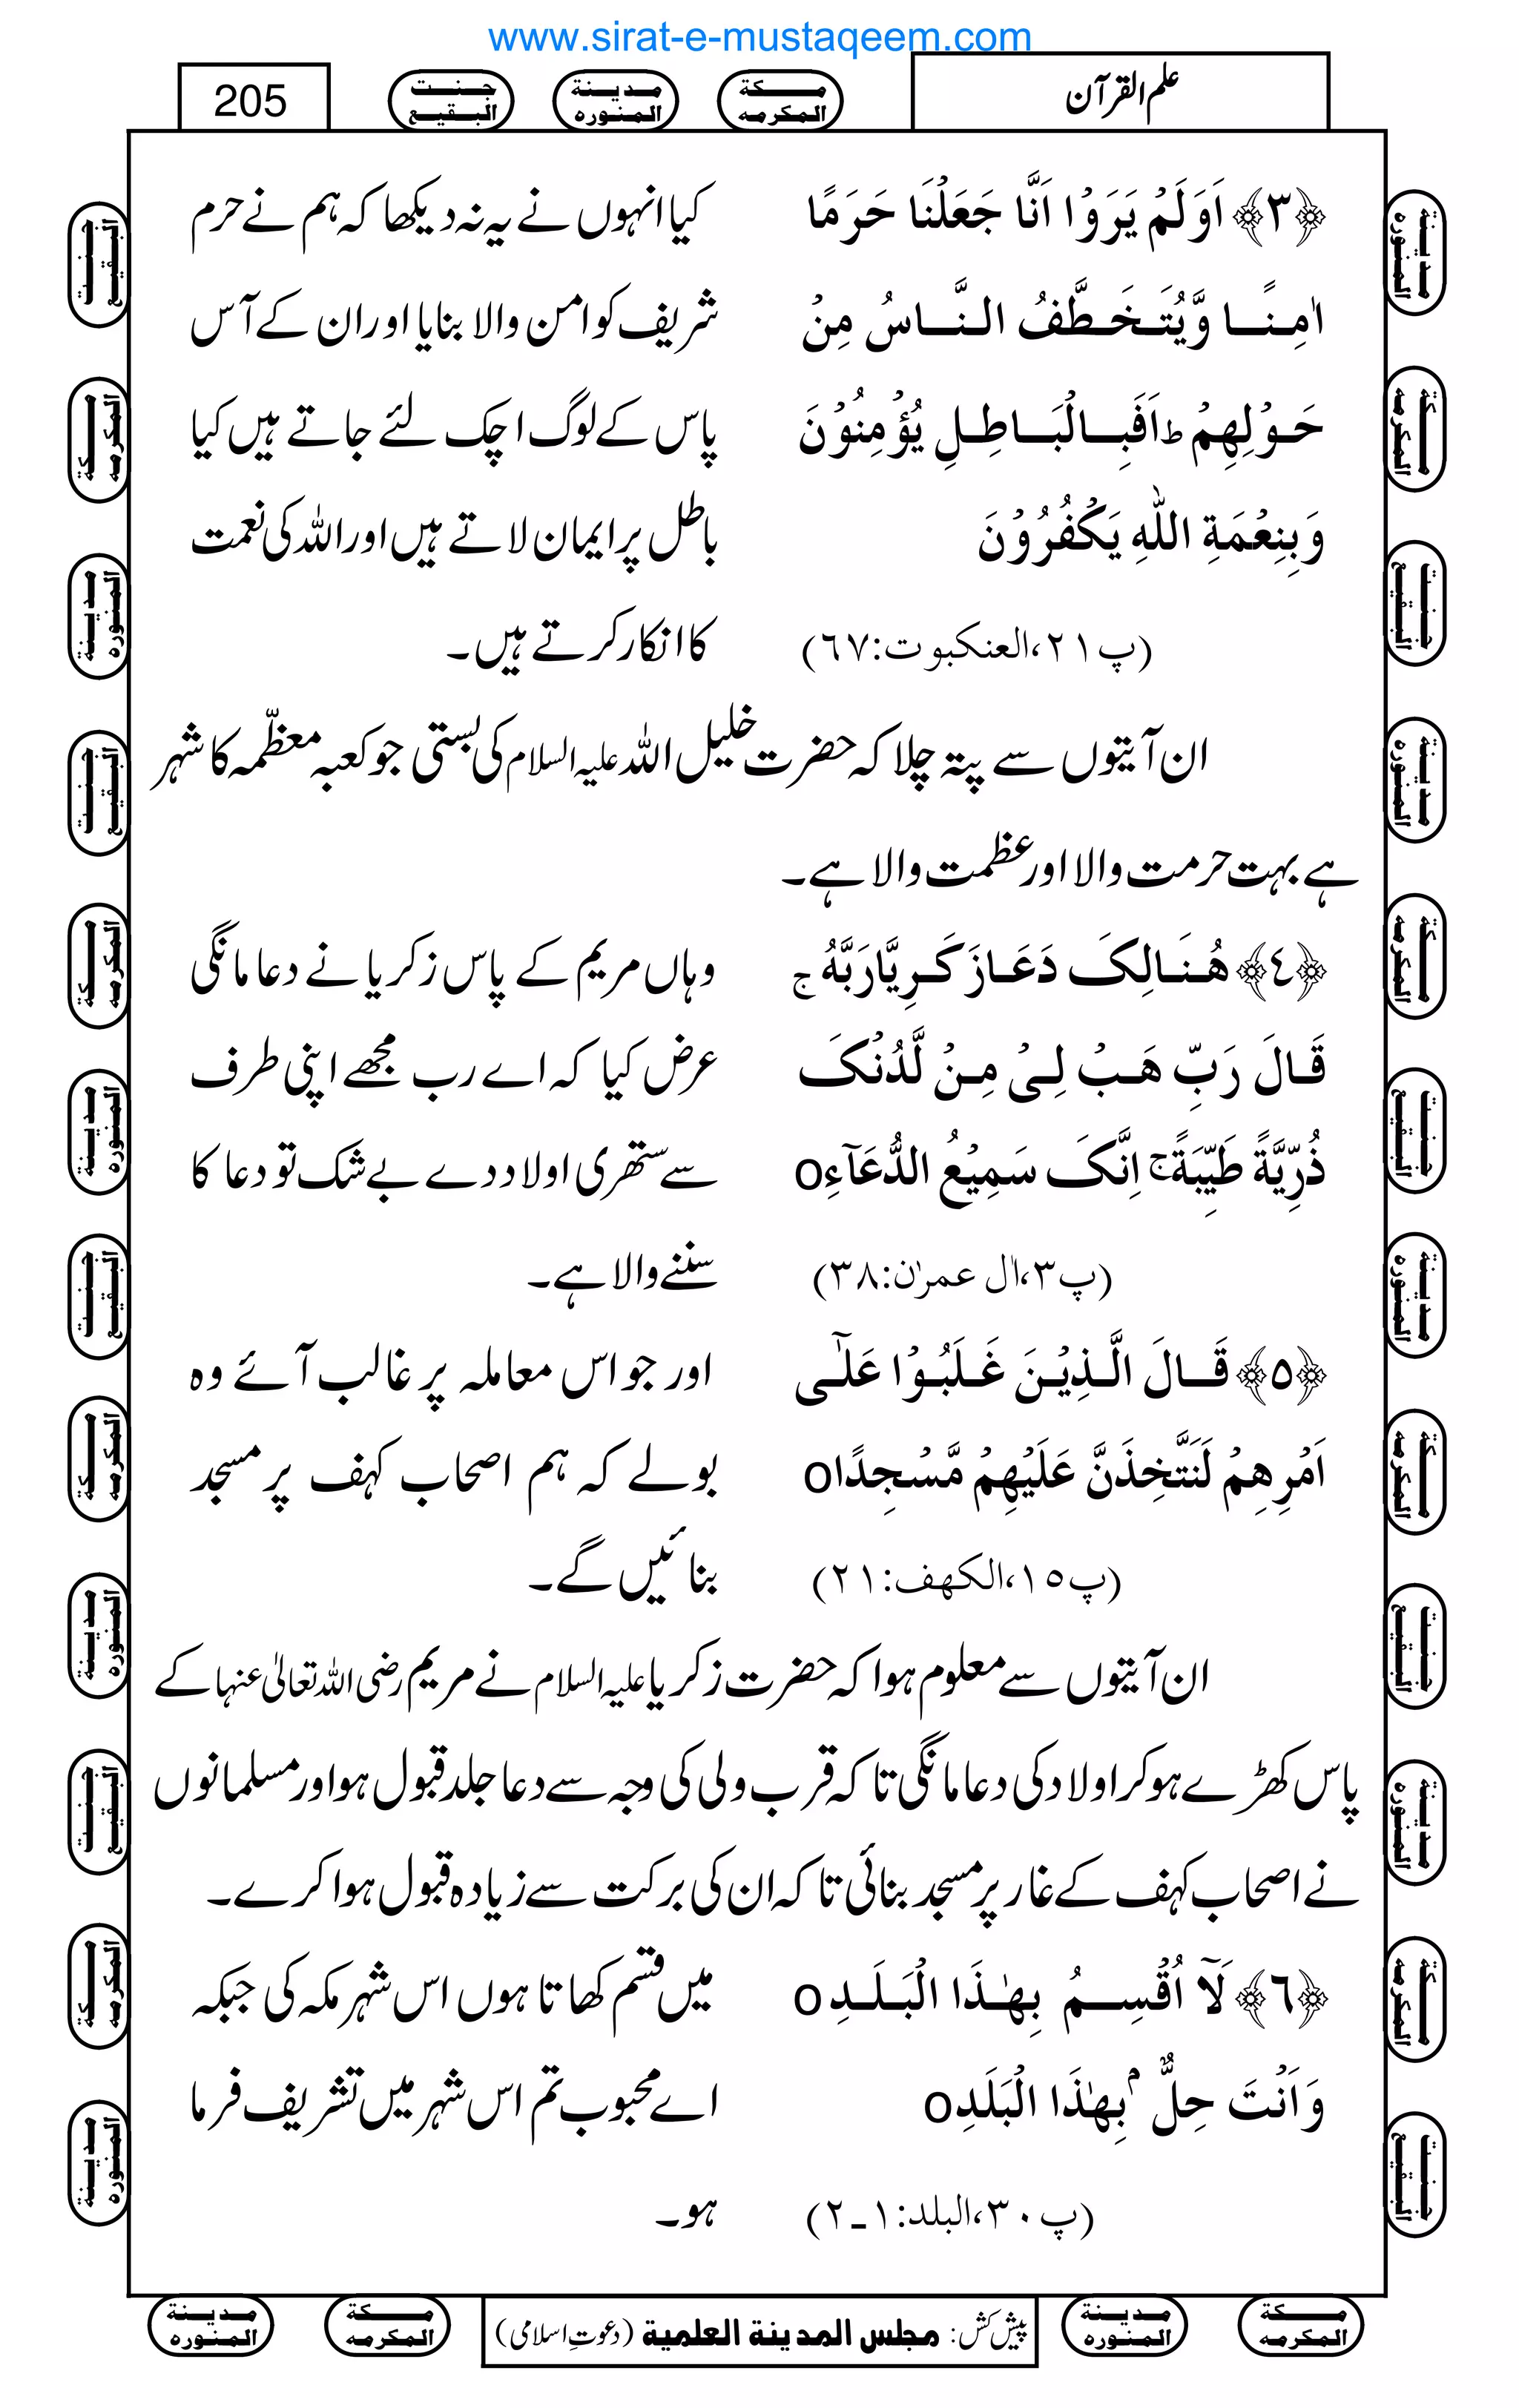 www.sirat-e-mustaqeem.com
علم القرآن
مکة المکرمه
مدینة المنوره
جنت البقیع
205
﴿٣﴾ اَوَلَمْ يَرَوْا اَنَّا جَعَلْنَا حَرَمًا
اٰمِنًا وَّيُتَخَطَّفُ النَّاسُ مِنْ
حَوْلِهِمْ ط اَفَبِالْبَاطِلِ يُؤْمِنُوْنَ
وَبِنِعْمَةِ اللّٰهِ يَكْفُرُوْنَ
(پ٢١،العنكبوت:٦٧)
کیا انہوں نے یہ نہ دیکھا کہ ہم نے حرم
شریف کو امن والا بنایا اور ان کے آس
پاس کے لوگ اچک لئے جاتے ہیں کیا
باطل پر ایمان لاتے ہیں اور اللہ کی نعمت
کا انکار کرتے ہیں۔
ان آیتوں سے پتہ چلا کہ حضرت خلیل اللہ علیہ السلام کی بستی جو کعبہ معظّمہ کا شہر
ہے بہت حرمت والا اور عظمت والا ہے۔
﴿٤﴾ هُنَالِکَ دَعَا زَكَرِيَّا رَبَّهٗ ج
قَالَ رَبِّ هَبْ لِیْ مِنْ لَّدُنْکَ
ذُرِّيَّةً طَيِّبَةً ج اِنَّکَ سَمِيْعُ الدُّعَآءِ o
(پ٣،اٰل عمرٰن:٣٨)
وہاں مریم کے پاس زکریا نے دعا مانگی
عرض کیا کہ اے رب مجھے اپنی طرف
سے ستھری اولاد دے بے شک تو دعا کا
سننے والا ہے۔
﴿٥﴾ قَالَ الَّذِيْنَ غَلَبُوْا عَلٰٓی
اَمْرِهِمْ لَنَتَّخِذَنَّ عَلَيْهِمْ مَّسْجِدًا o
(پ١٥،الكهف:٢١)
اور جو اس معاملہ پر غالب آئے وہ
بولے کہ ہم اصحاب کہف پر مسجد
بنائیں گے۔
ان آیتوں سے معلوم ہوا کہ حضرت زکریا علیہ السلام نے مریم رضی اللہ تعالٰی عنہا کے
پاس کھڑے ہو کر اولاد کی دعا مانگی تا کہ قرب ولی کی وجہ سے دعا جلد قبول ہو اور مسلمانوں
نے اصحاب کہف کے غار پر مسجد بنائی تا کہ ان کی برکت سے زیادہ قبول ہوا کرے۔
﴿٦﴾ لَآ اُقْسِمُ بِهٰذَا الْبَلَدِ o
وَاَنْتَ حِلٌّ ۢ بِهٰذَا الْبَلَدِ o
(پ٣٠،البلد:١۔٢)
میں قسم کھاتا ہوں اس شہر مکہ کی جبکہ
اے محبوب تم اس شہر میں تشریف فرما
ہو۔
پیش کش: مجلس المدینة العلمیة (دعوتِ اسلامی)